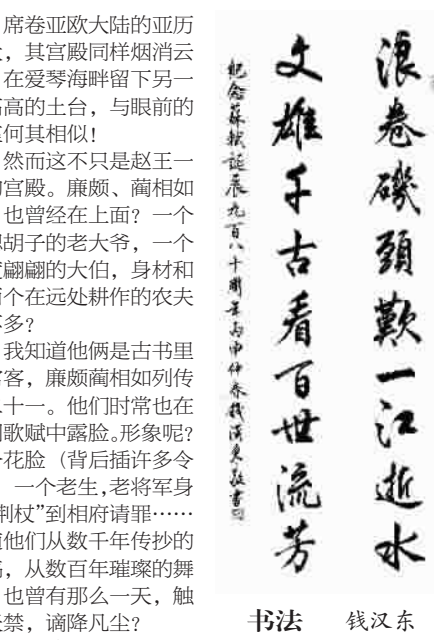 席卷亚欧大陆的亚历
,其宫殿同样烟消云
在爱琴海畔留下另一
高高的土台,与眼前的
何其相似!
然而这不只是赵王一
宫殿。廉颇、蔺相如
也曾经在上面?一个
胡子的老大爷,一个
翩翩的大伯,身材和
个在远处耕作的农夫
多?
我知道他俩是古书里
客,廉颇蔺相如列传
十一。他们时常也在
歌赋中露脸。形象呢?
花脸(背后插许多令
一个老生,老将军身
荆杖”到相府请罪……
他们从数千年传抄的
,从数百年璀璨的舞
也曾有那么一天,触
禁,谪降凡尘?
浪卷磯頭歎一江逝水
文雄千古看百世流芳
紀念蘇軾誕辰九百八十周年丙申仲春錢漢東敬書
书法 钱汉东